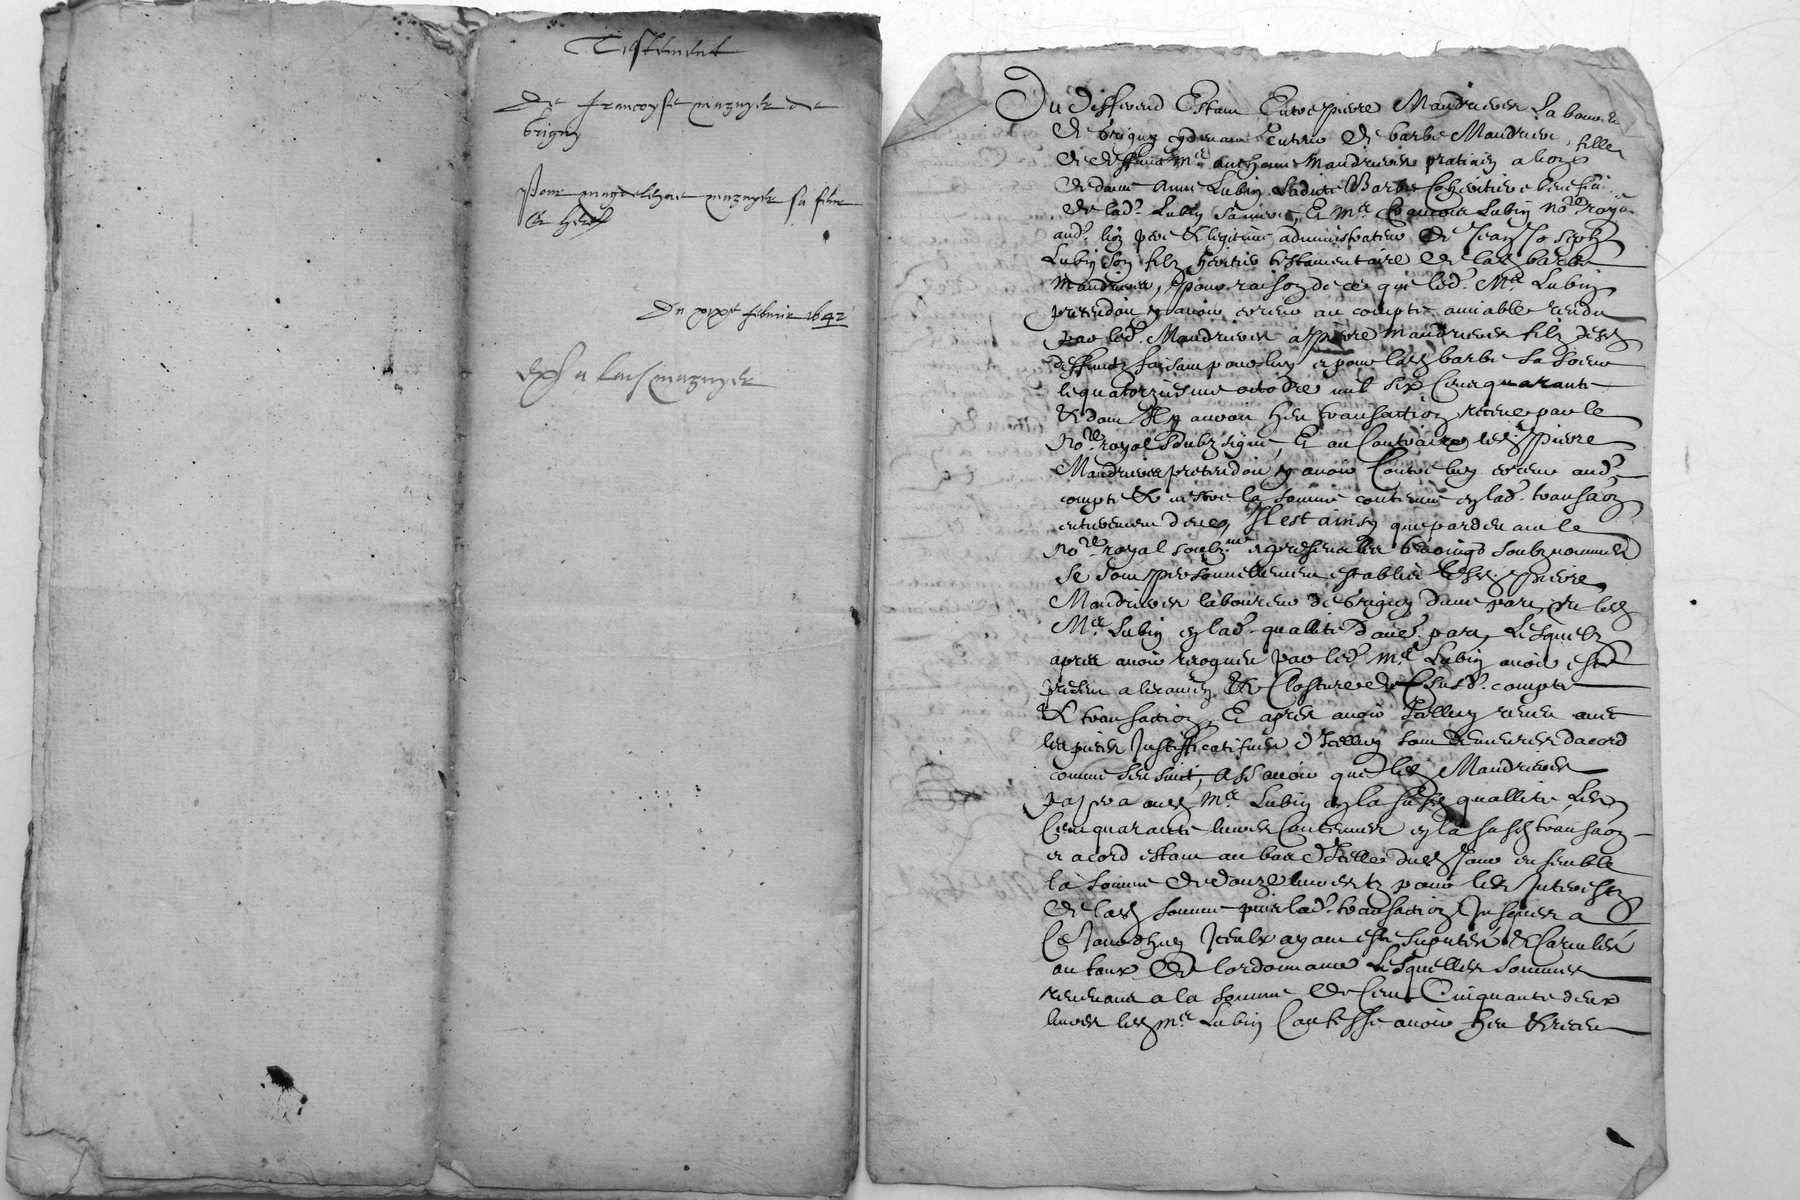 Testement
De francoyse mazuyer de
brigny
Pour magdeleyne mazuyer sa
Du xixe febvrier 1642
mazuyer
Du differend Estant Entre pierre Mandrieu Laboureur
de brigny heritier de barbe Mandrieu fille
de deffunct Me anthoine Mandrieu praticien a lion
de dame Anne Lubin ladicte Barbe Coheritiere
de lad. Lubin sa mere, Et Me Lubin Nore royal
aud. lion pere & legitime administrateur de Jean Joseph
Lubin son filz heritier testamentaire de lad barbe
Mandrieu, pour raison de ce que led. Me Lubin
pretendoit y avoir erreur au compte amiable rendu
par led. Mandrieu a pierre Mandrieu filz desd
deffunctz faisant pour luy & pour lad barbe sa soeur
le quatorziesme octobre mil six Cens quarante
& dont Il y auroit heu transaction receue par le
Nore royal soubzsigné, Et au Contraire led. pierre
Mandrieu pretendoit y avoir Contre luy erreur aud.
compte & oultre la somme contenue en lad. transaon
Il est ainsy que pardevant le
Nore royal soubz.né & presens les tesmoings soubz nommes
se sont personnellement establis lesd. pierre
Mandrieu laboureur de brigny d'une part, & led
Me Lubin en lad. quallité d'aue. part, Lesquelz
apres avoir recogneu par led. Me Lubin avoir esté
present a & Closture dud. compte
& transaction, Et apres avoir Icelluy reveu avec
les pieces Justifficatives d'Icelluy sont demeures d'acord
comme s'en suict, Assavoir que led Mandrieu
payera aud Me Lubin en la susd quallité Les
Cent quarante livres Contenues en la susd transaon
& acord estant au bas d'Icelle dud Jour ensemble
la somme de douze livres pour les Interestz
de lad somme puis lad. transaction Jusques a
Ce Jourdhuy Iceulx ayant esté suputés & Calculés
au taux de l'ordonnance Lesquelles sommes
revenant a la somme de Cent Cinquante deux
livres led Me Lubin Confesse avoir heu & receu